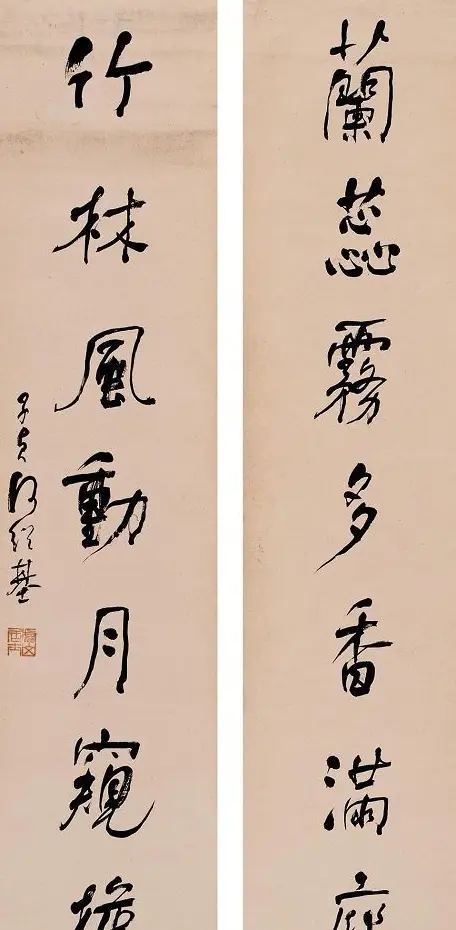 蘭蕊霧多香滿
竹林風動月窺
子貞何紹基